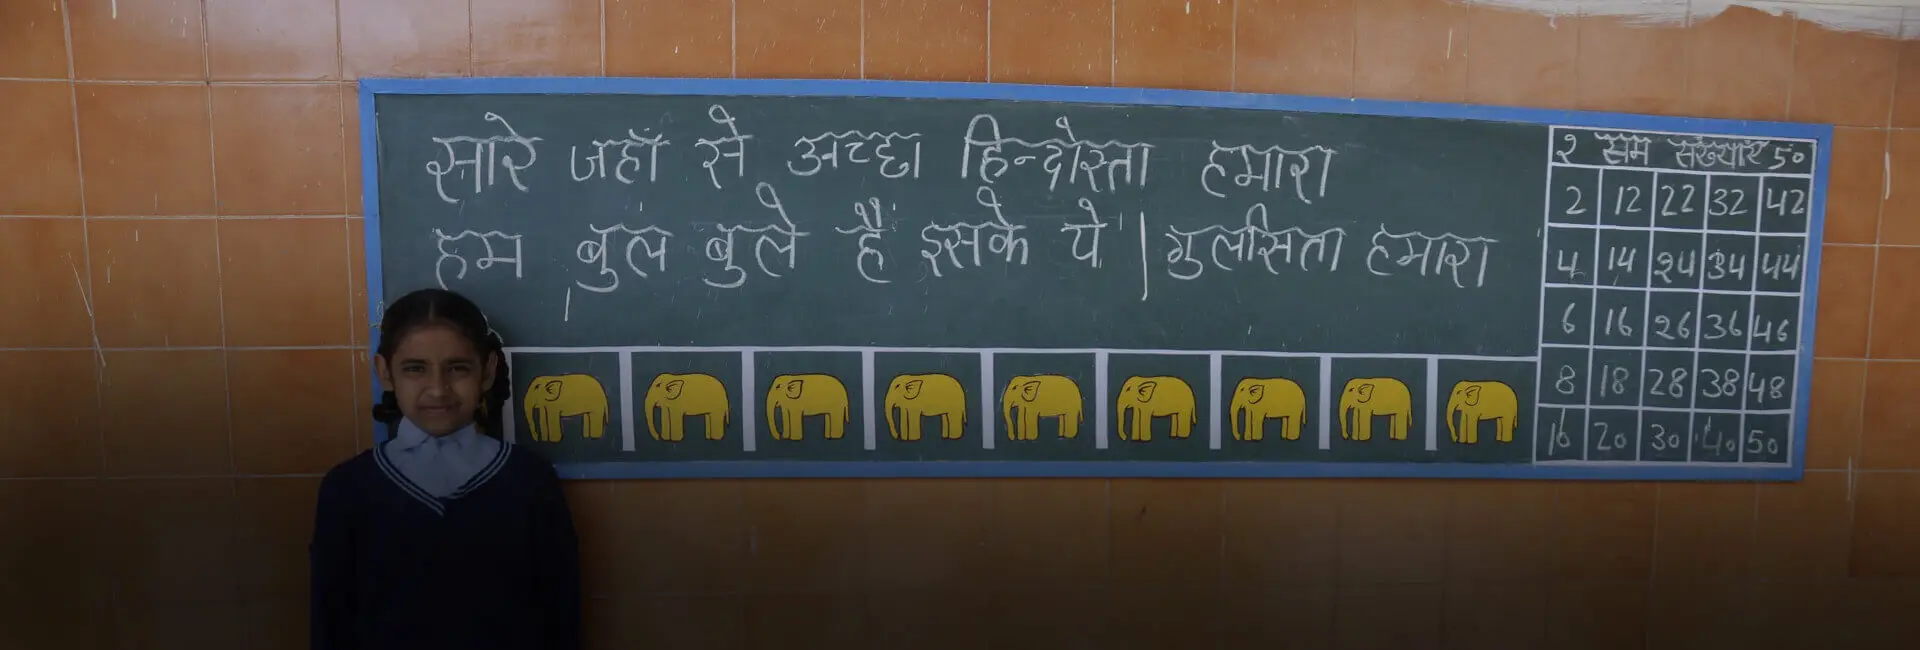 सारे जहाँ से अच्छा हिन्दोस्ता हमारा
हम बुल बुले हैं इसके ये | गुलसिता हमारा
२ सम संख्याएं ५०
2 12 22 32 42
4 14 24 34 44
6 16 26 36 46
8 18 28 38 48
10 20 30 40 50